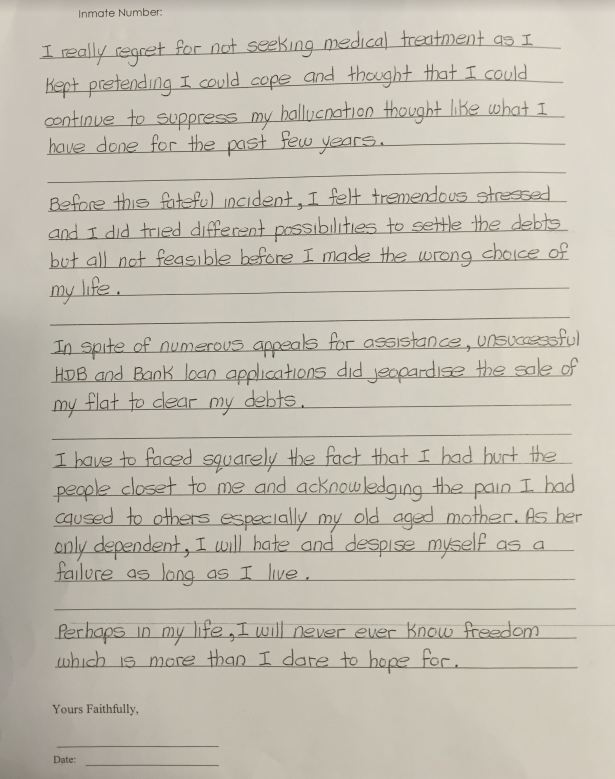 Inmate Number:
I really regret for not seeking medical treatment as I
kept pretending I could cope and thought that I could
continue to suppress my hallucnation thought like what I
have done for the past few years.
Before this fateful incident, I felt tremendous stressed
and I did tried different possibilities to settle the debts
but all not feasible before I made the wrong choice of
my life.
In spite of numerous appeals for assistance, unsuccessful
HDB and Bank loan applications did jeopardise the sale of
my flat to clear my debts.
I have to faced squarely the fact that I had hurt the
people closet to me and acknowledging the pain I had
caused to others especially my old aged mother. As her
only dependent, I will hate and despise myself as a
failure as long as I live.
Perhaps in my life, I will never ever know freedom
which is more than I dare to hope for.
Yours Faithfully,
Date: